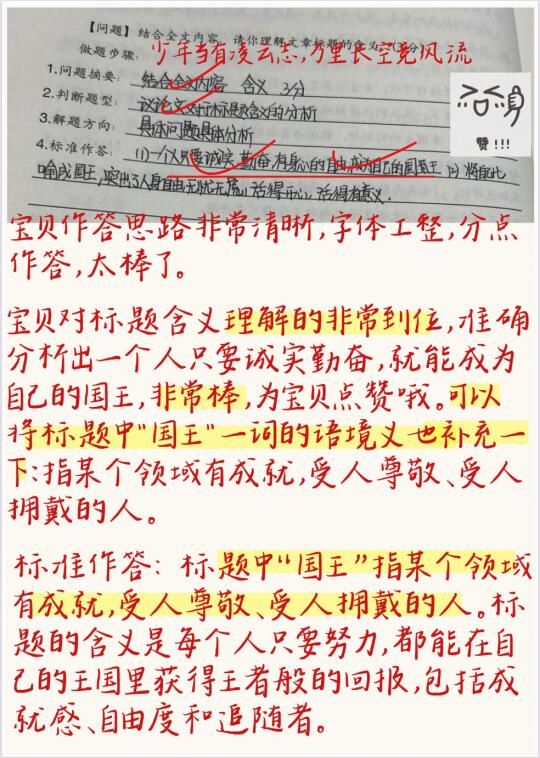 【问题】结合全文内容,请你理解文章标题的含义。(3分)
做题步骤:
少年当有凌云志,万里长空竞风流
1.问题摘要: 结合全文内容 含义 3分
2.判断题型: 议论文对标题含义的分析
3.解题方向: 具体问题具体分析
4.标准作答: (1)一个人只要诚实、勤奋、有身心的自由,成为自己的国王 (2)将自比
喻成国王,突出了人身自由,无忧无虑,活得开心,活得有意义.
赞!!!
宝贝作答思路非常清晰,字体工整,分点
作答,太棒了。
宝贝对标题含义理解的非常到位,准确
分析出一个人只要诚实勤奋,就能成为
自己的国王,非常棒,为宝贝点赞哦。可以
将标题中“国王”一词的语境义也补充一
下:指某个领域有成就,受人尊敬、受人
拥戴的人。
标准作答:标题中“国王”指某个领域
有成就,受人尊敬、受人拥戴的人。标
题的含义是每个人只要努力,都能在自
己的王国里获得王者般的回报,包括成
就感、自由度和追随者。